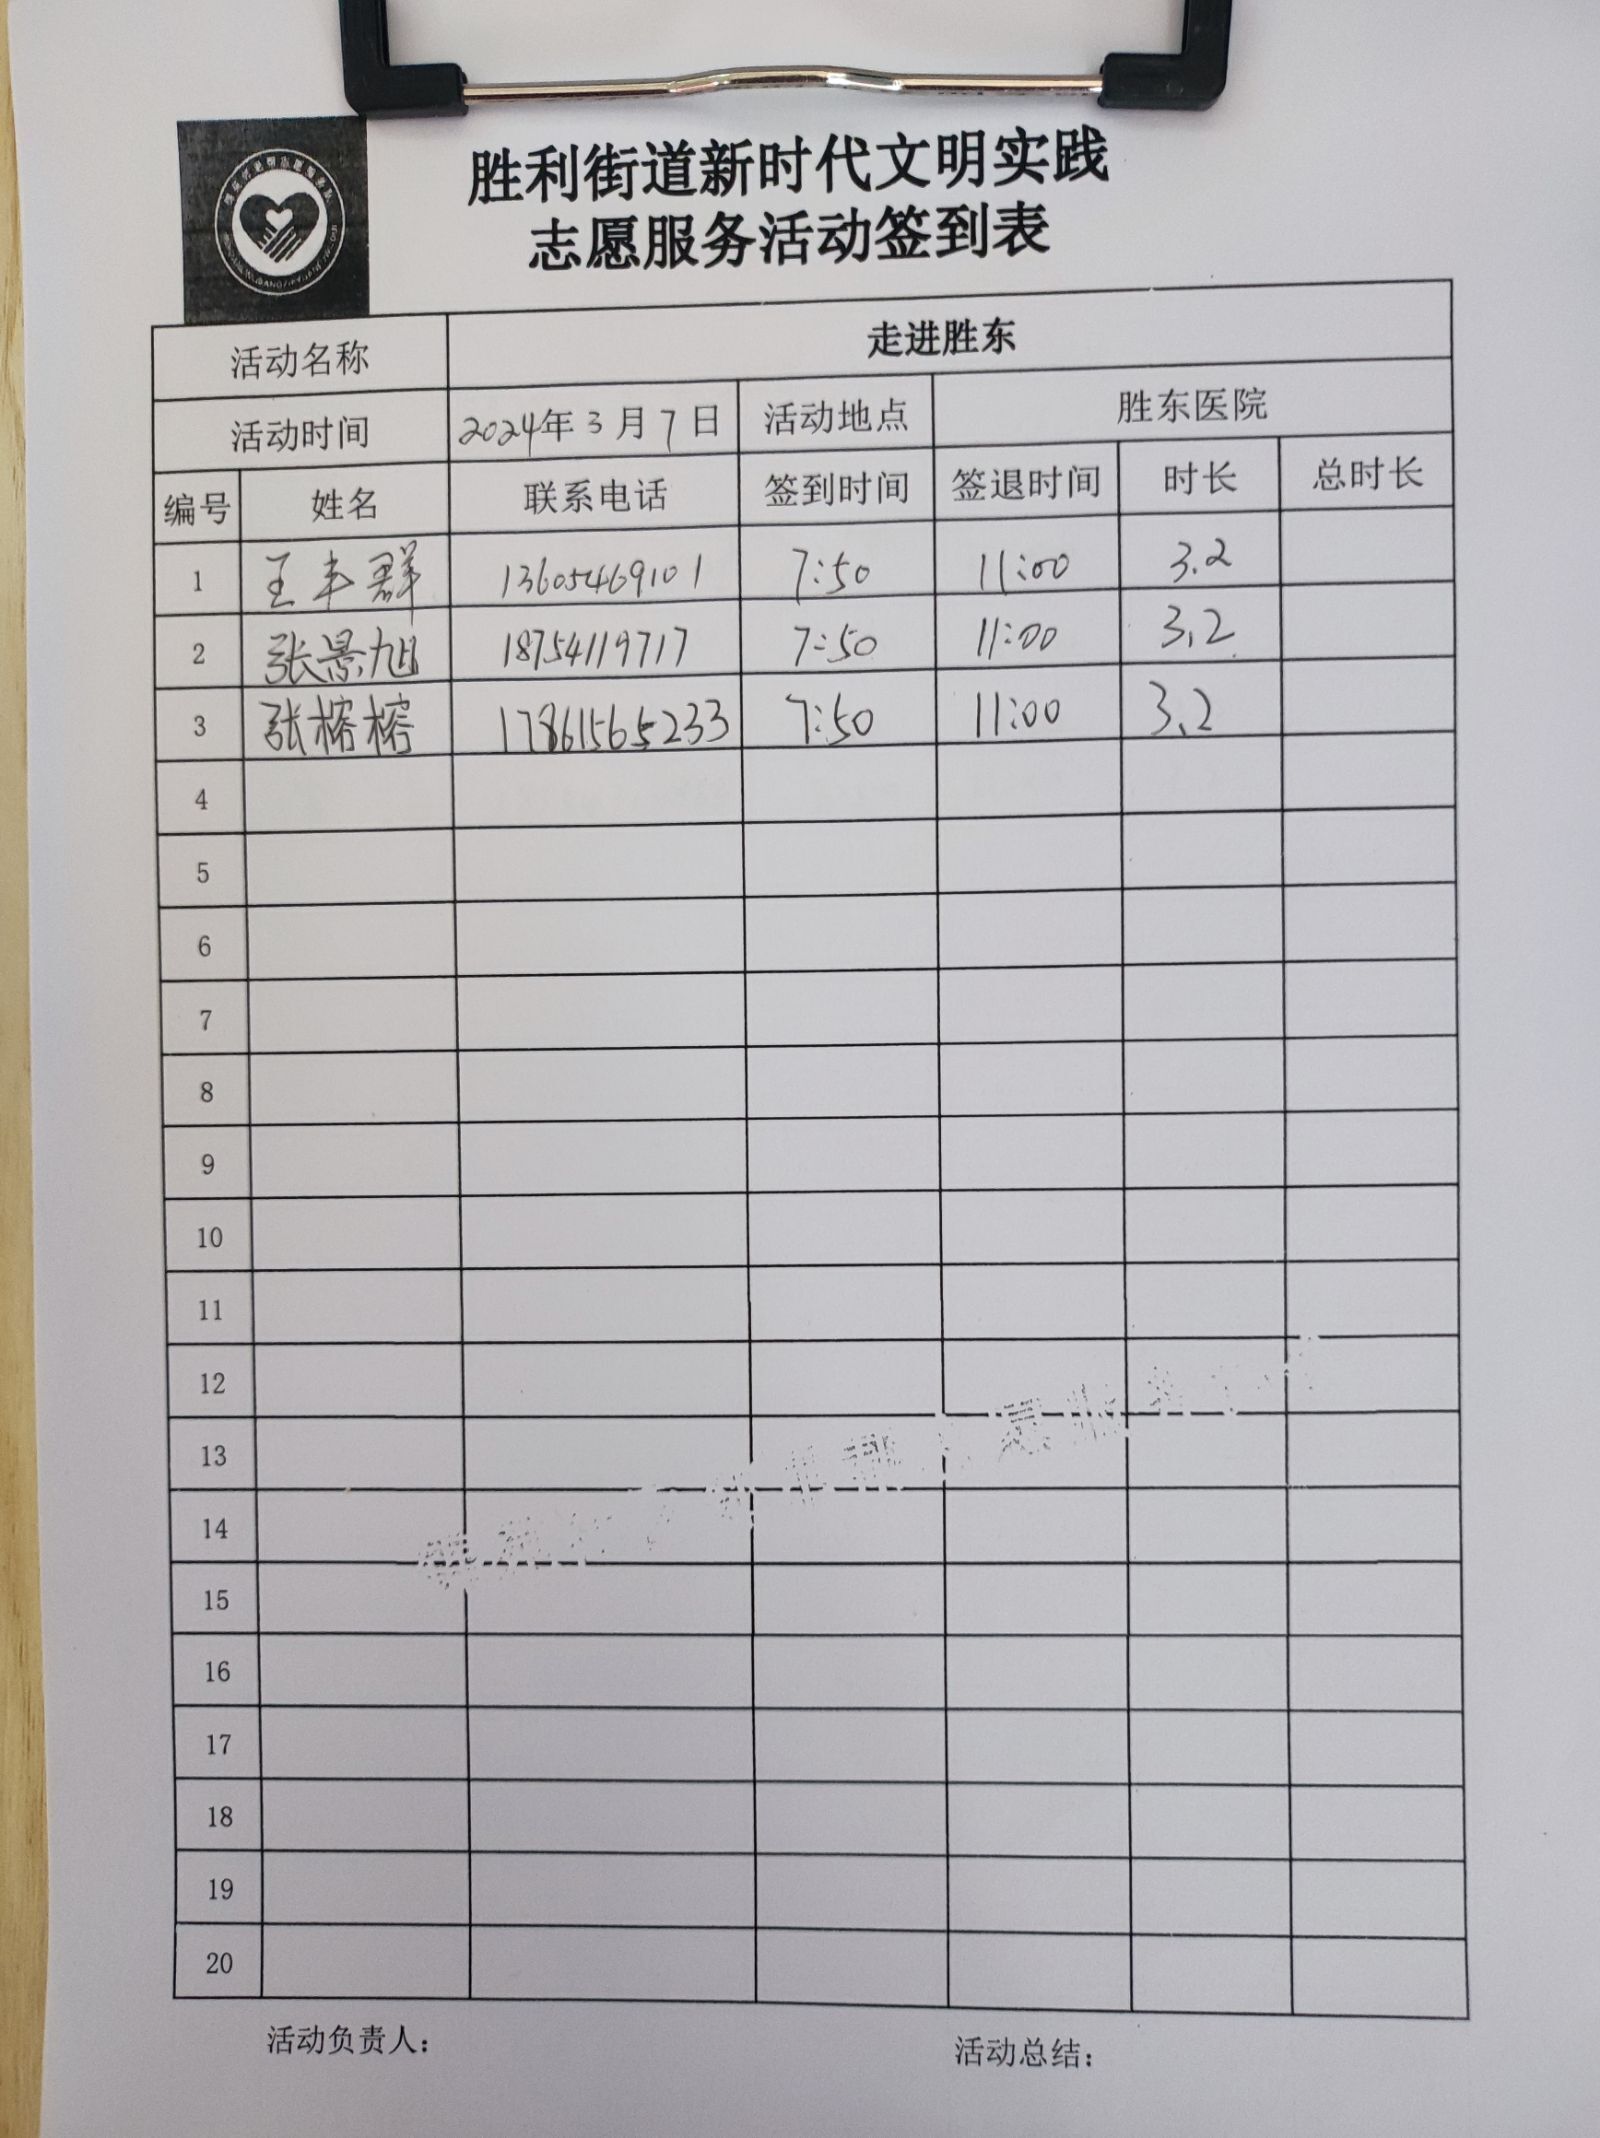 胜利街道新时代文明实践
志愿服务活动签到表
活动名称 走进胜东
活动时间 2024年3月7日 活动地点 胜东医院
编号 姓名 联系电话 签到时间 签退时间 时长 总时长
1 王丰群 13605469101 7:50 11:00 3.2
2 张景旭 18754119717 7:50 11:00 3.2
3 张榕榕 17861565233 7:50 11:00 3.2
4
5
6
7
8
9
10
11
12
13
14
15
16
17
18
19
20
活动负责人： 活动总结：